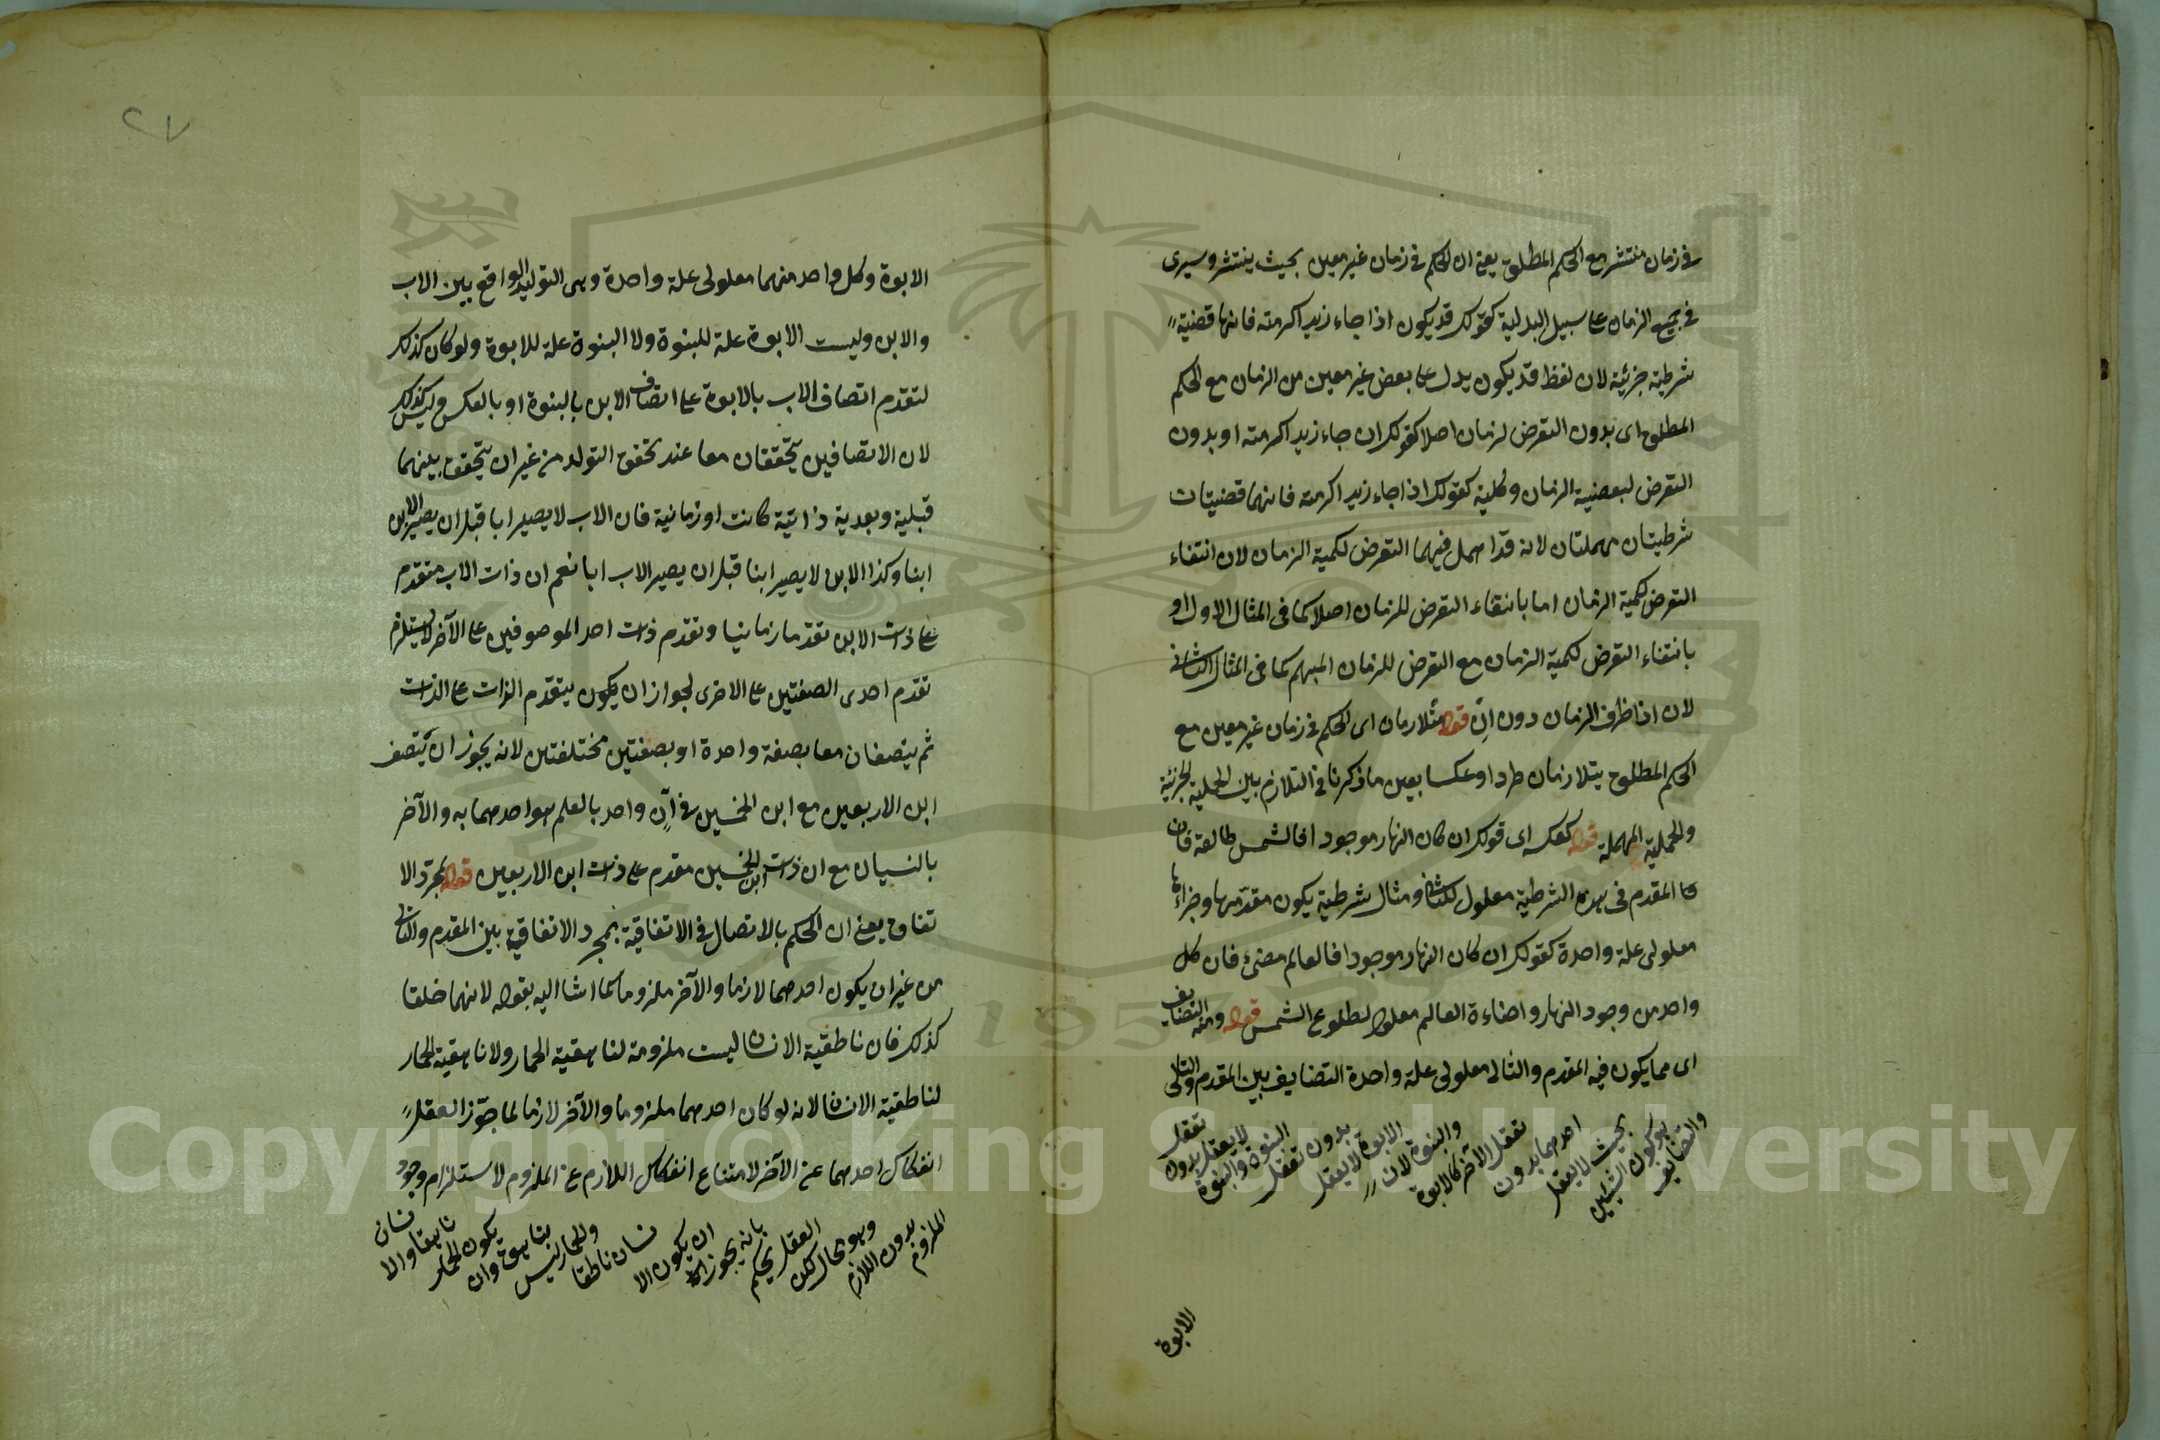 في زمان منتشر مع الحكم المطلق يعني ان الحكم في زمان غير معين بحيث ينتشر و سيرى
في جميع الزمان على سبيل البدلية كقولك قد يكون اذا جاء زيد اكرمته فانها قضية
شرطية جزئية لان لفظ قد يكون يدل على بعض غير معين من الزمان مع الحكم
المطلق اى بدون التعرض لزمان اصلا كقولك ان جاء زيد اكرمته او بدون
التعرض لبعضية الزمان و كلية كقولك اذا جاء زيد اكرمته فانهما قضيتات
شرطيتان مهملتان لانه قد اهمل فيهما التعرض لكمية الزمان لان انتفاء
التعرض لكمية الزمان اما بانتفاء التعرض للزمان اصلا كما في المثال الاول او
بانتفاء التعرض لكمية الزمان مع التعرض للزمان المبهم كما في المثال الثاني
لان اذا ظرف الزمان دون اِنْ قوله متلازمان اى الحكم في زمان غير معين مع
الحكم المطلق يتلازمان طردا وعكسا بعين ما ذكرنا في التلازم بين الحملية الجزئية
والحملية المهملة قوله كعكسه اى قولك ان كان النهار موجودا فالشمس طالعة فان
المقدم في هذه الشرطية معلول للتالى و مثال شرطية يكون مقدمها وجزاءها
معلولى علة واحدة كقولك ان كان النهار موجودا فالعالم مضئ فان كل
واحد من وجود النهار واضاءة العالم معلول لطلوع الشمس قوله ومنه التضايف
اى مما يكون فيه المقدم والتالى معلولى علة واحدة التضايف بين المقدم والتالى
والتضايف هو كون الشيئين بحيث لا يعقل احدهما بدون تعقل الآخر كالابوة والبنوة لان الابوة لا يعقل بدون تعقل البنوة والبنوة لا يعقل بدون تعقل
الابوة
٢٧
الابوة وكل واحد منهما معلولى علة واحدة وهى التوليد الواقع بين الاب
والابن وليست الابوة علة للبنوة ولا البنوة علة للابوة ولو كان كذلك
لتقدم اتصاف الاب بالابوة على اتصاف الابن بالبنوة او بالعكس وليس كذلك
لان الاتصافين يتحققان معا عند تحقق التولد من غير ان يتحقق بينهما
قبلية وبعدية ذاتية كانت او زمانية فان الاب لا يصير ابا قبل ان يصير الابن
ابنا وكذا الابن لا يصير ابنا قبل ان يصير الاب ابا نعم ان ذات الاب متقدم
على ذات الابن تقدما زمانيا وتقدم ذات احد الموصوفين على الآخر لا يستلزم
تقدم احدى الصفتين على الاخرى لجواز ان يكون يتقدم الذات على الذات
ثم يتصفان معا بصفة واحدة او بصفتين مختلفتين لانه يجوز ان يتصف
ابن الاربعين مع ابن الخمسين في آن واحد بالعلم هو احدهما به والآخر
بالنسيان مع ان ذات ابن الخمسين مقدم على ذات ابن الاربعين قوله بمجرد الا
تفاق يعني ان الحكم بالاتصال في الاتفاقية بمجرد الاتفاقية بين المقدم والتالى
من غير ان يكون احدهما لازما والآخر ملزوما كما اشا اليه بقوله لانهما خلقا
كذلك فان ناطقية الانسان ليست ملزومة لناهقية الحمار ولا ناهقية الحمار
لناطقية الانسان لانه لو كان احدهما ملزوما والآخر لازما لما جوّز العقل
انفكاك احدهما عن الآخر لامتناع انفكاك اللازم عن الملزوم لاستلزام وجود
الملزوم بدون اللازم وهو محال لكن العقل يحكم بانه يجوز ان يكون الا نسان ناطقا والحمار ليس بناهق وان يكون الحمار ناهقا والا نسان